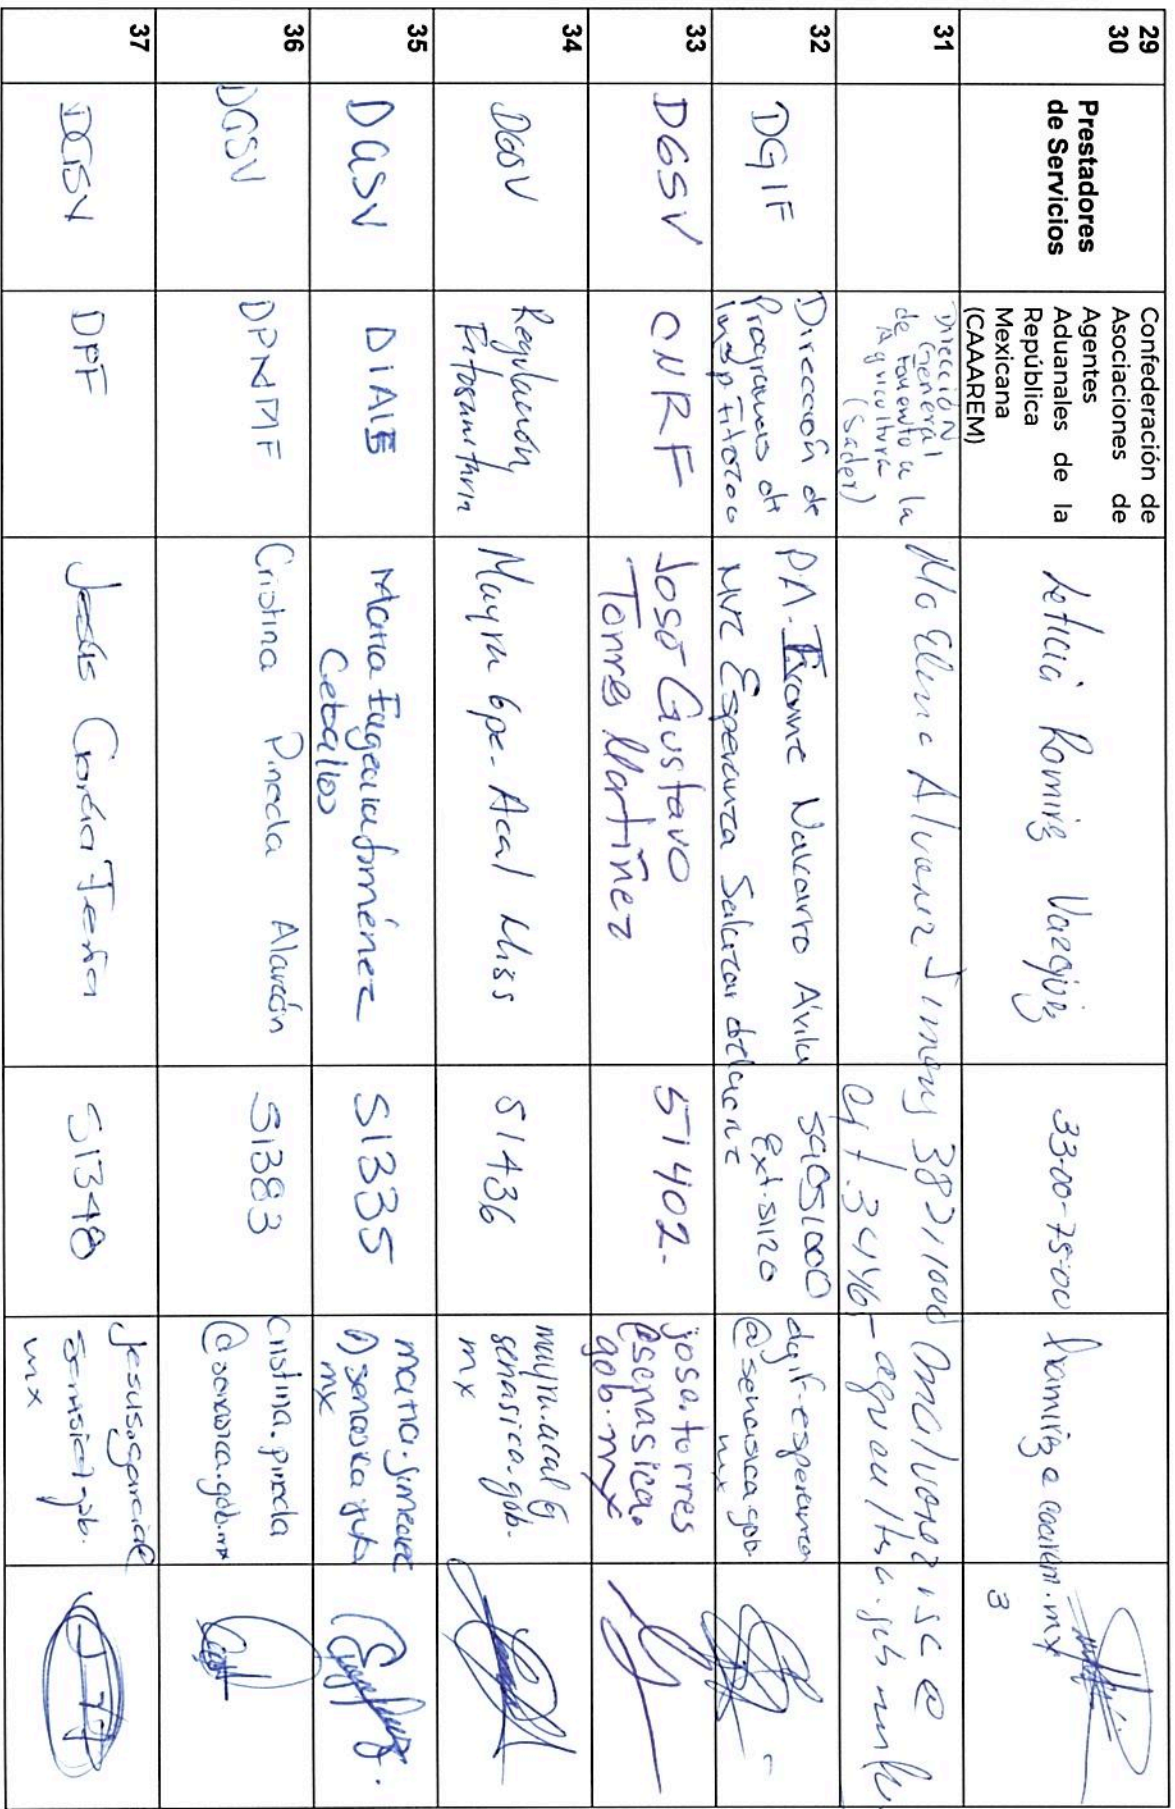 29
30
Prestadores
de Servicios
Confederación de
Asociaciones de
Agentes
Aduanales de la
República
Mexicana
(CAAAREM)
Leticia Romirez
33-00-75-00
3
31
Dirección
General
de Fomento a la
Agricultura
(Sader)
Ma Elena Alvarez Jimenez
32
DGIF
Dirección de
Programas de
Insp Fitozoo
P.A. Navarro Avila
MVZ Esperanza Salazar
59051000
Ext. 51120
@senasica.gob.
mx
33
DGSV
CNRF
José Gustavo
Torres Martínez
51402.
jose.torres
@senasica.
gob.mx
34
DGSV
Regulación
Fitosanitaria
Mayra Gpe. Acal Miss
51436
mayra.acal@
senasica.gob.
mx
35
DGSV
DIAIE
Maria Eugenia Jiménez
Ceballos
51335
mx
36
DGSV
DPNMF
Cristina Pineda Alarcón
51383
cristina.pineda
@senasica.gob.mx
37
DGSV
DPF
Jesús García
51348
jesus.garcia@
senasica.gob.
mx